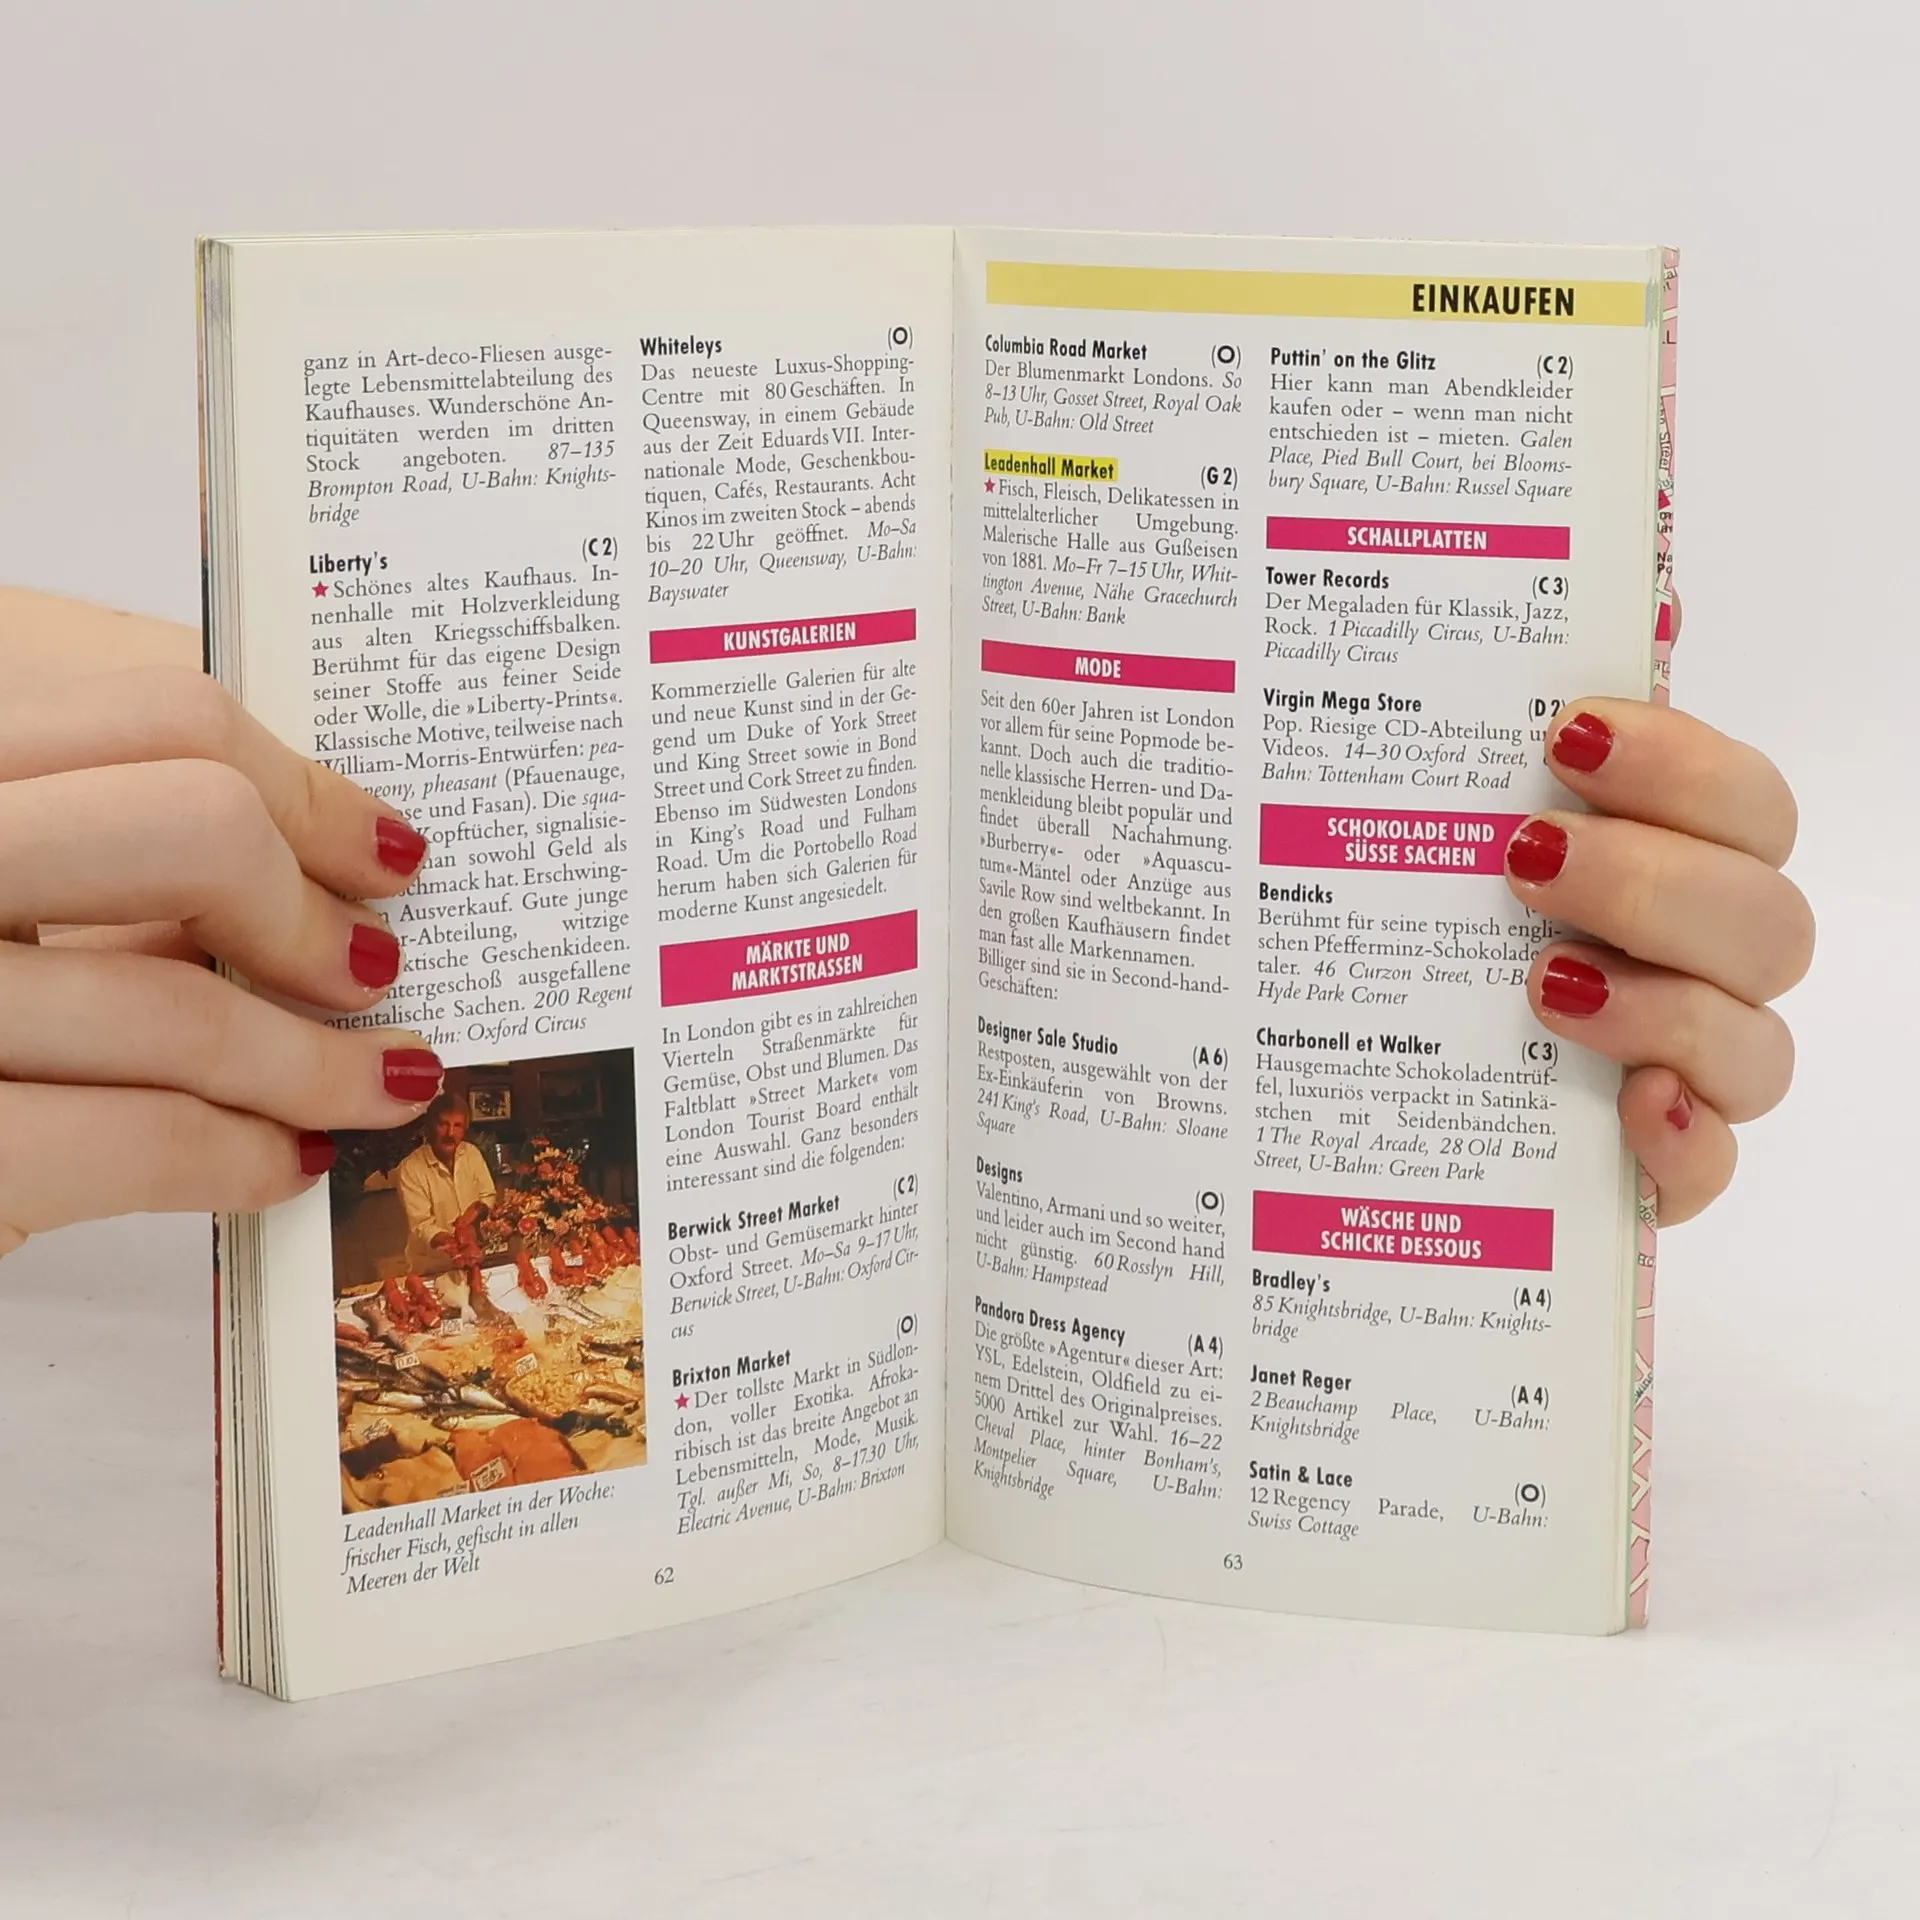 ganz in Art-deco-Fliesen ausge-
legte Lebensmittelabteilung des
Kaufhauses. Wunderschöne An-
tiquitäten werden im dritten
Stock angeboten. 87–135
Brompton Road, U-Bahn: Knights-
bridge
Liberty's (C 2)
★ Schönes altes Kaufhaus. In-
nenhalle mit Holzverkleidung
aus alten Kriegsschiffsbalken.
Berühmt für das eigene Design
seiner Stoffe aus feiner Seide
oder Wolle, die »Liberty-Prints«.
Klassische Motive, teilweise nach
William-Morris-Entwürfen: pea-
peony, pheasant (Pfauenauge,
und Fasan). Die squa-
Kopftücher, signalisie-
man sowohl Geld als
hat. Erschwing-
Ausverkauf. Gute junge
-Abteilung, witzige
Geschenkideen.
ausgefallene
orientalische Sachen. 200 Regent
Oxford Circus
Leadenhall Market in der Woche:
frischer Fisch, gefischt in allen
Meeren der Welt
Whiteleys (O)
Das neueste Luxus-Shopping-
Centre mit 80 Geschäften. In
Queensway, in einem Gebäude
aus der Zeit Eduards VII. Inter-
nationale Mode, Geschenkbou-
tiquen, Cafés, Restaurants. Acht
Kinos im zweiten Stock – abends
bis 22 Uhr geöffnet. Mo–Sa
10–20 Uhr, Queensway, U-Bahn:
Bayswater
KUNSTGALERIEN
Kommerzielle Galerien für alte
und neue Kunst sind in der Ge-
gend um Duke of York Street
und King Street sowie in Bond
Street und Cork Street zu finden.
Ebenso im Südwesten Londons
in King's Road und Fulham
Road. Um die Portobello Road
herum haben sich Galerien für
moderne Kunst angesiedelt.
MÄRKTE UND
MARKTSTRASSEN
In London gibt es in zahlreichen
Vierteln Straßenmärkte für
Gemüse, Obst und Blumen. Das
Faltblatt »Street Market« vom
London Tourist Board enthält
eine Auswahl. Ganz besonders
interessant sind die folgenden:
Berwick Street Market (C 2)
Obst- und Gemüsemarkt hinter
Oxford Street. Mo–Sa 9–17 Uhr,
Berwick Street, U-Bahn: Oxford Cir-
cus
Brixton Market (O)
★ Der tollste Markt in Südlon-
don, voller Exotika. Afroka-
ribisch ist das breite Angebot an
Lebensmitteln, Mode, Musik.
Tgl. außer Mi, So, 8–17.30 Uhr,
Electric Avenue, U-Bahn: Brixton
62
EINKAUFEN
Columbia Road Market (O)
Der Blumenmarkt Londons. So
8–13 Uhr, Gosset Street, Royal Oak
Pub, U-Bahn: Old Street
Leadenhall Market (G 2)
★ Fisch, Fleisch, Delikatessen in
mittelalterlicher Umgebung.
Malerische Halle aus Gußeisen
von 1881. Mo–Fr 7–15 Uhr, Whit-
tington Avenue, Nähe Gracechurch
Street, U-Bahn: Bank
MODE
Seit den 60er Jahren ist London
vor allem für seine Popmode be-
kannt. Doch auch die traditio-
nelle klassische Herren- und Da-
menkleidung bleibt populär und
findet überall Nachahmung.
»Burberry«- oder »Aquascu-
tum«-Mäntel oder Anzüge aus
Savile Row sind weltbekannt. In
den großen Kaufhäusern findet
man fast alle Markennamen.
Billiger sind sie in Second-hand-
Geschäften:
Designer Sale Studio (A 6)
Restposten, ausgewählt von der
Ex-Einkäuferin von Browns.
241 King's Road, U-Bahn: Sloane
Square
Designs (O)
Valentino, Armani und so weiter,
und leider auch im Second hand
nicht günstig. 60 Rosslyn Hill,
U-Bahn: Hampstead
Pandora Dress Agency (A 4)
Die größte »Agentur« dieser Art:
YSL, Edelstein, Oldfield zu ei-
nem Drittel des Originalpreises.
5000 Artikel zur Wahl. 16–22
Cheval Place, hinter Bonham's,
Montpelier Square, U-Bahn:
Knightsbridge
Puttin' on the Glitz (C 2)
Hier kann man Abendkleider
kaufen oder – wenn man nicht
entschieden ist – mieten. Galen
Place, Pied Bull Court, bei Blooms-
bury Square, U-Bahn: Russel Square
SCHALLPLATTEN
Tower Records (C 3)
Der Megaladen für Klassik, Jazz,
Rock. 1 Piccadilly Circus, U-Bahn:
Piccadilly Circus
Virgin Mega Store (D 2)
Pop. Riesige CD-Abteilung
Videos. 14–30 Oxford Street,
Bahn: Tottenham Court Road
SCHOKOLADE UND
SÜSSE SACHEN
Bendicks
Berühmt für seine typisch engli-
schen Pfefferminz-Schokolade
taler. 46 Curzon Street,
Hyde Park Corner
Charbonell et Walker (C 3)
Hausgemachte Schokoladentrüf-
fel, luxuriös verpackt in Satinkä-
stchen mit Seidenbändchen.
1 The Royal Arcade, 28 Old Bond
Street, U-Bahn: Green Park
WÄSCHE UND
SCHICKE DESSOUS
Bradley's (A 4)
85 Knightsbridge, U-Bahn: Knights-
bridge
Janet Reger (A 4)
2 Beauchamp Place, U-Bahn:
Knightsbridge
Satin & Lace (O)
12 Regency Parade, U-Bahn:
Swiss Cottage
63